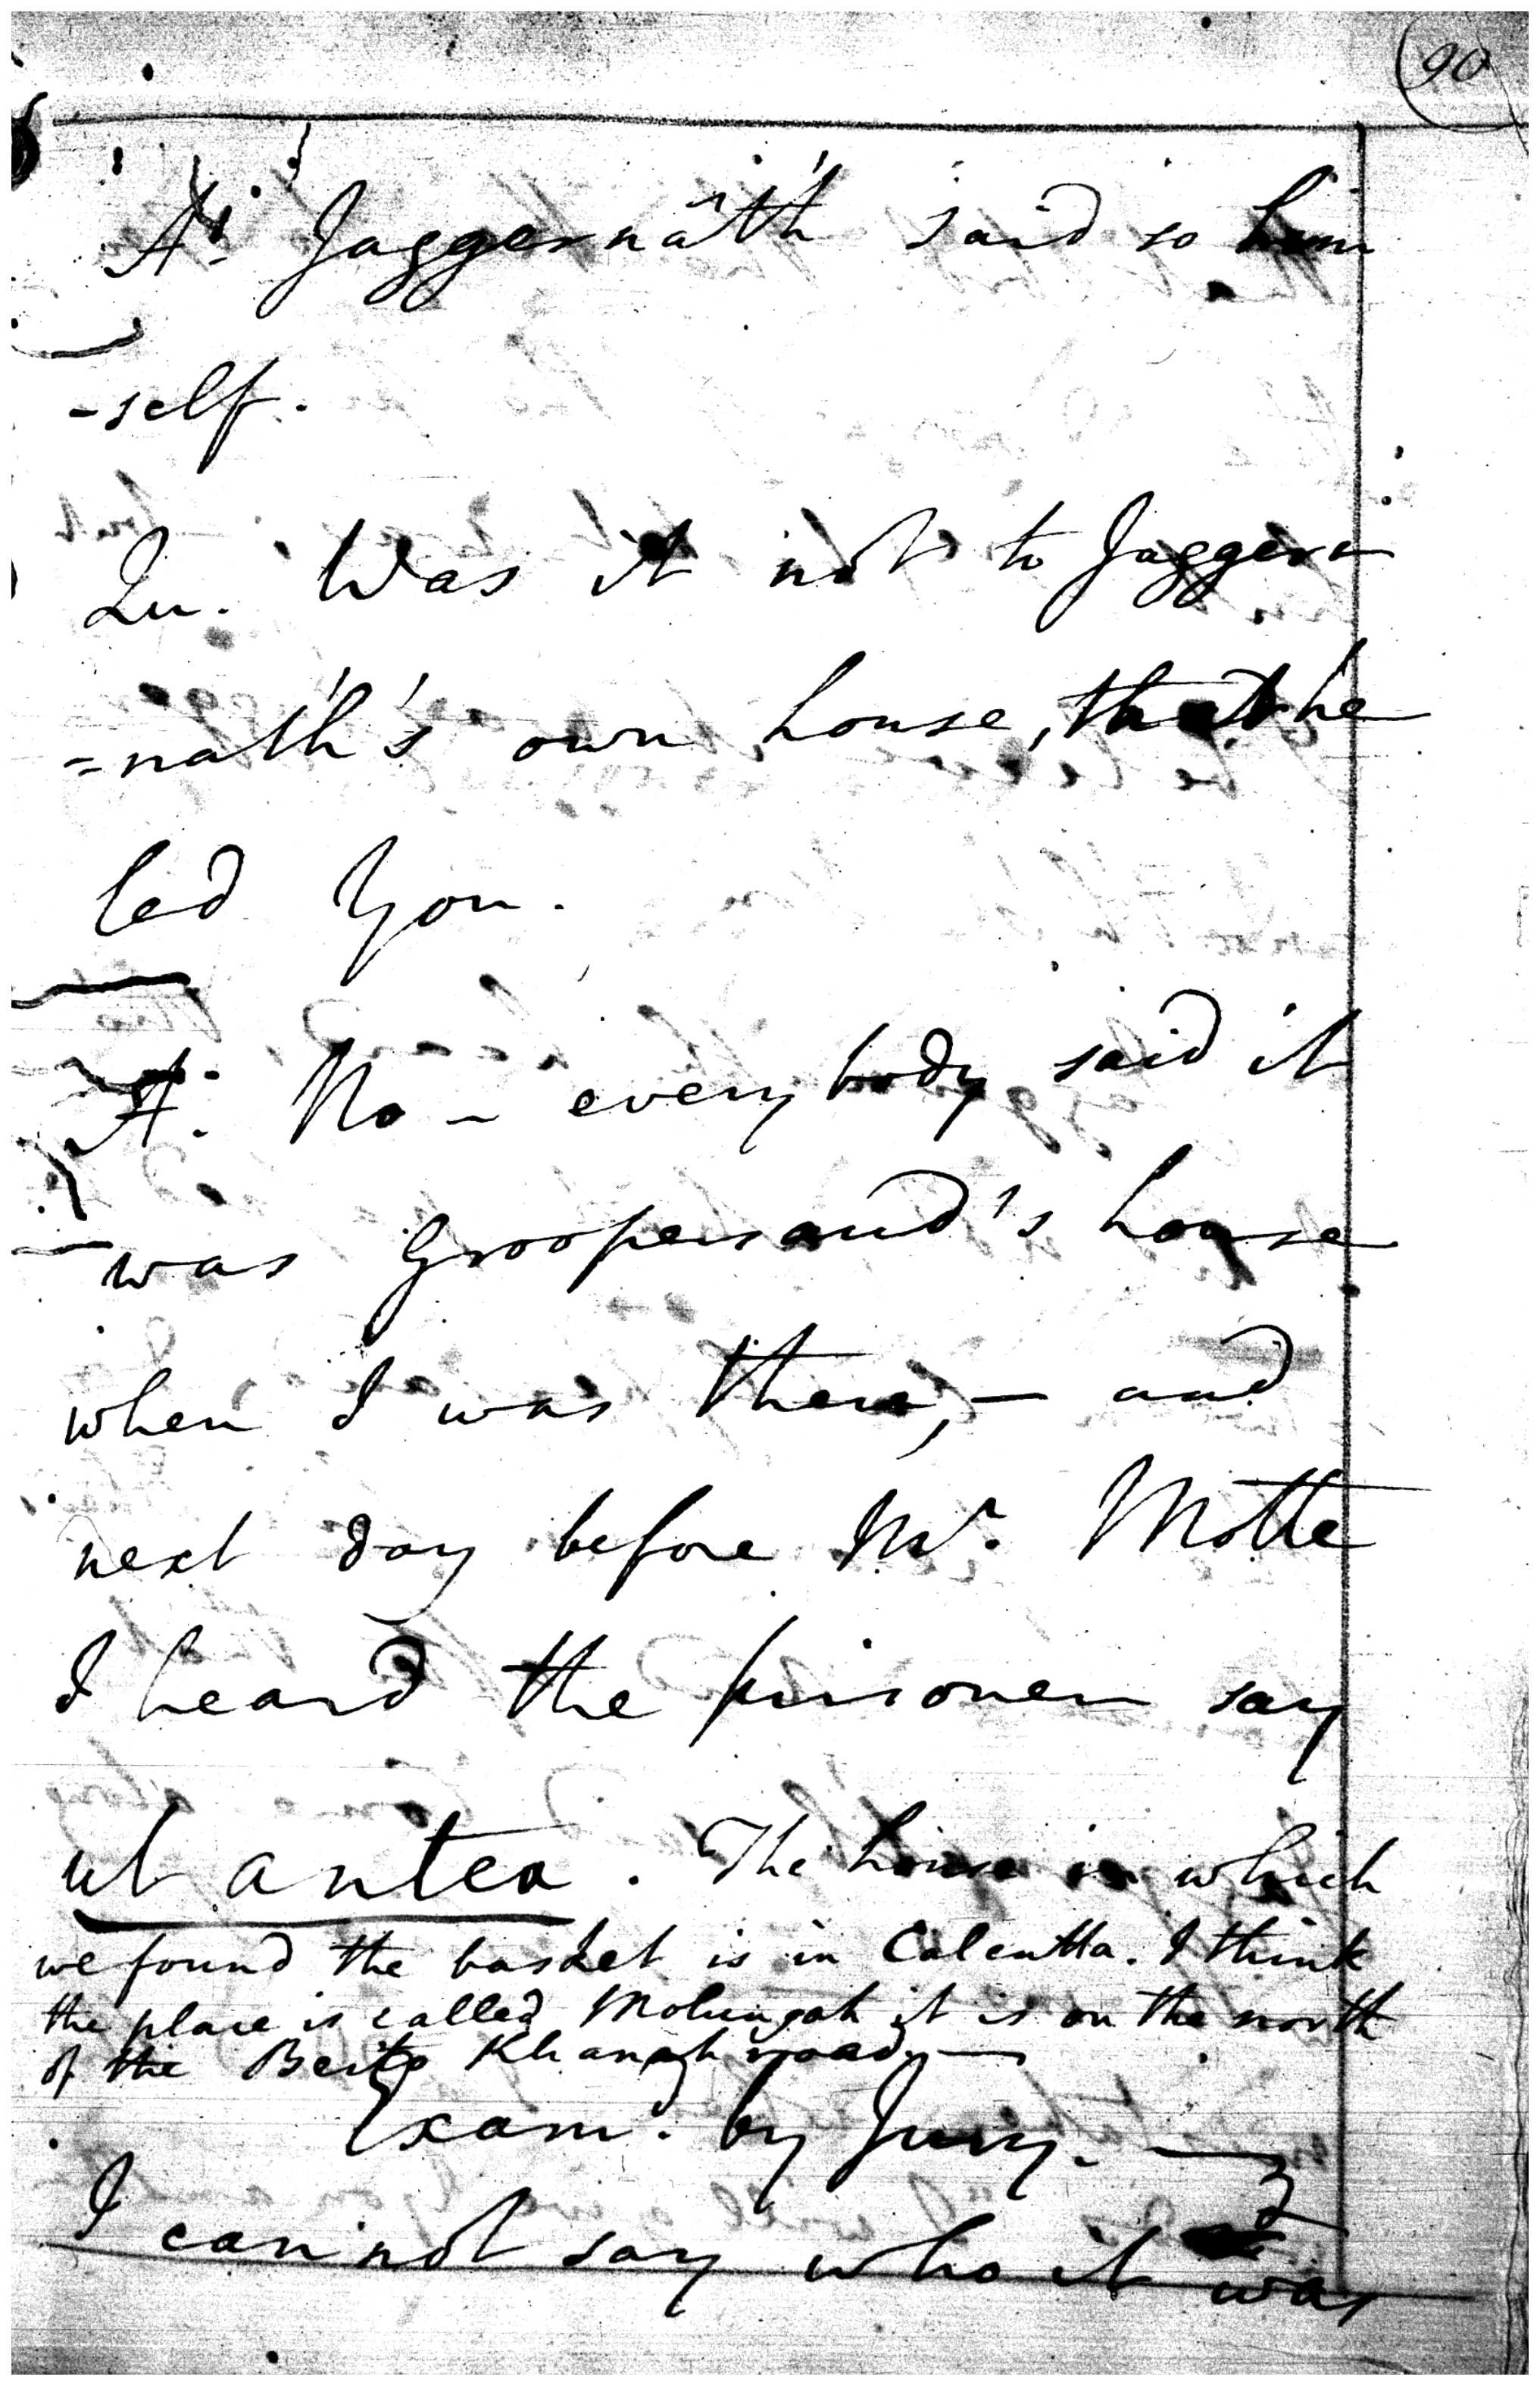 90
A. Jaggernâth said so him
-self.
Qu. Was it not to Jaggern
=nath's own house, that he
led You.
A. No - everybody said it
was Groopersaud's house
when I was there, - and
next day before Mr. Motte
I heard the prisoner say
ut antea. The house in which
we found the basket is in Calcutta. I think
the place is called Molungah it is on the north
of the Khanah road,
Exam. by Jury.
I cannot say who it was